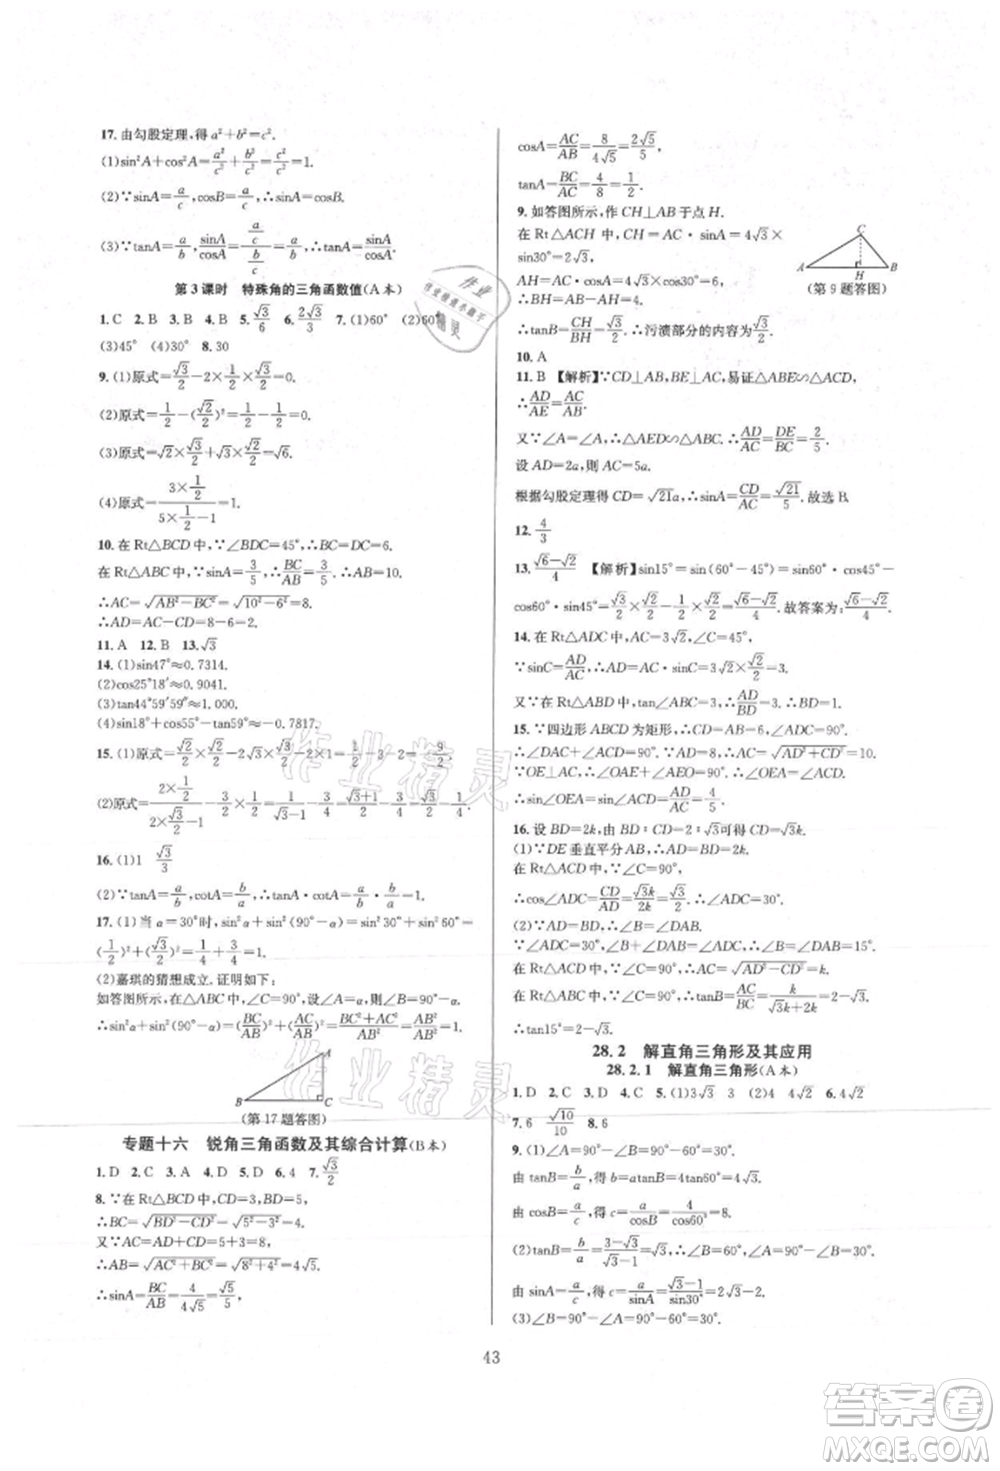 17. 由勾股定理,得 a²+b²=c².
(1)sin²A+cos²A=a²/c²+b²/c²=c²/c²=1.
(2)∵sinA=a/c,cosB=a/c,∴sinA=cosB.
(3)∵tanA=a/b,sinA/cosA=(a/c)/(b/c)=a/b,∴tanA=sinA/cosA.
第 3 课时 特殊角的三角函数值(A本)
1. C 2. B 3. B 4. B 5. √3/6 6. 2√3/3 7. (1)60° (2)60°
(3)45° (4)30° 8. 30
9. (1)原式=√3/2-2×1/2×√3/2=0.
(2)原式=1/2-(√2/2)²=1/2-1/2=0.
(3)原式=√2×√3/2+√3×√2/2=√6.
(4)原式=(3×1/2)/(5×1/2-1)=1.
10. 在 Rt△BCD 中,∵∠BDC=45°,∴BC=DC=6.
在 Rt△ABC 中,∵sinA=3/5,∴BC/AB=3/5,∴AB=10,
∴AC=√(AB²-BC²)=√(10²-6²)=8.
∴AD=AC-CD=8-6=2.
11. A 12. B 13. √3
14. (1)sin47°≈0.7314.
(2)cos25°18′≈0.9041.
(3)tan44°59′59″≈1.000.
(4)sin18°+cos55°-tan59°≈-0.7817.
15. (1)原式=√2/2×√2/2-2√3×√3/2-2×1=1/2-3-2=-9/2.
16. (1)1 √3/3
(2)∵tanA=a/b,cotA=b/a,∴tanA·cotA=a/b·b/a=1.
17. (1)当 α=30°时,sin²α+sin²(90°-α)=sin²30°+sin²60°=
(1/2)²+(√3/2)²=1/4+3/4=1.
(2)嘉琪的猜想成立.证明如下:
如答图所示,在△ABC 中,∠C=90°,设∠A=α,则∠B=90°-α.
∴sin²α+sin²(90°-α)=(BC/AB)²+(AC/AB)²=(BC²+AC²)/AB²=AB²/AB²=1.
A
B
C
(第 17 题答图)
专题十六 锐角三角函数及其综合计算(B本)
1. D 2. C 3. A 4. D 5. D 6. 4 7. √3/2
8. ∵在 Rt△BCD 中,CD=3,BD=5,
∴BC=√(BD²-CD²)=√(5²-3²)=4.
又∵AC=AD+CD=5+3=8,
∴AB=√(AC²+BC²)=√(8²+4²)=4√5.
∴sinA=BC/AB=4/(4√5)=√5/5,
cosA=AC/AB=8/(4√5)=2√5/5,
tanA=BC/AC=4/8=1/2.
9. 如答图所示,作 CH⊥AB 于点 H.
在 Rt△ACH 中,CH=AC·sinA=4√3×
sin30°=2√3,
AH=AC·cosA=4√3×cos30°=6.
∴BH=AB-AH=4.
∴tanB=CH/BH=√3/2.∴污渍部分的内容为√3/2.
C
A
H
B
(第 9 题答图)
10. A
11. B 【解析】∵CD⊥AB,BE⊥AC,易证△ABE∽△ACD,
∴AD/AE=AC/AB.
又∵∠A=∠A,∴△AED∽△ABC.∴AD/AC=DE/BC=2/5.
设 AD=2a,则 AC=5a.
根据勾股定理得 CD=√21a,∴sinA=CD/AC=√21/5.故选 B.
12. 4/3
13. (√6-√2)/4 【解析】sin15°=sin(60°-45°)=sin60°·cos45°-
cos60°·sin45°=√3/2·√2/2-1/2·√2/2=(√6-√2)/4.故答案为:(√6-√2)/4.
14. 在 Rt△ADC 中,AC=3√2,∠C=45°,
∵sinC=AD/AC,∴AD=AC·sinC=3√2×√2/2=3.
又∵在 Rt△ABD 中,tanB=3,∴AD/BD=3.∴BD=1.
15. ∵四边形 ABCD 为矩形,∴CD=AB=6,∠ADC=90°,
∴∠DAC+∠ACD=90°,∴AC=√(AD²+CD²)=10.
∵OE⊥AC,∴∠OAE+∠AEO=90°,∴∠OEA=∠ACD.
∴sin∠OEA=sin∠ACD=AD/AC=4/5.
16. 设 BD=2k,由 BD∶CD=2∶√3可得 CD=√3k.
(1)∵DE垂直平分 AB,∴AD=BD=2k.
在 Rt△ACD 中,∠C=90°,
∴cos∠ADC=CD/AD=√3k/2k=√3/2,∴∠ADC=30°.
(2)∵AD=BD,∴∠B=∠DAB.
∵∠ADC=30°,∠B+∠DAB=∠ADC,∴∠B=∠DAB=15°.
在 Rt△ACD 中,∠C=90°,∴AC=√(AD²-CD²)=k.
在 Rt△ABC 中,∠C=90°,∴tanB=AC/BC=k/(√3k+2k)=2-√3.
∴tan15°=2-√3.
28.2 解直角三角形及其应用
28.2.1 解直角三角形(A本)
1. D 2. C 3. D 4. D 5. (1)3√3 (2)4 (3)4√2 6. 4√2
7. 6 8. √10/10
9. (1)∠A=90°-∠B=90°-60°=30°.
由 tanB=b/a,得 b=atanB=4tan60°=4√3.
由 cosB=a/c,得 c=a/cosB=4/cos60°=8.
(2)tanB=b/a=(3-√3)/(√3-1)=√3,∴∠B=60°,∴∠A=30°.
由 sinA=a/c,得 c=a/sinA=(√3-1)/sin30°=2√3-2.
(3)∠B=90°-∠A=90°-45°=45°.
43
作业精灵
作业精灵
答案圈
MXQE.COM